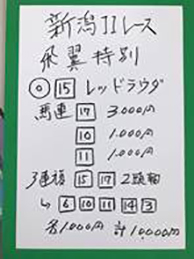 新潟11レース
飛翼特別
◎ 15 レッドラウダ
馬連 17 3,000円
10 1,000円
11 1,000円
3連複 15 17 2頭軸
↳ 6 10 11 14 3
各1,000円 計10,000円